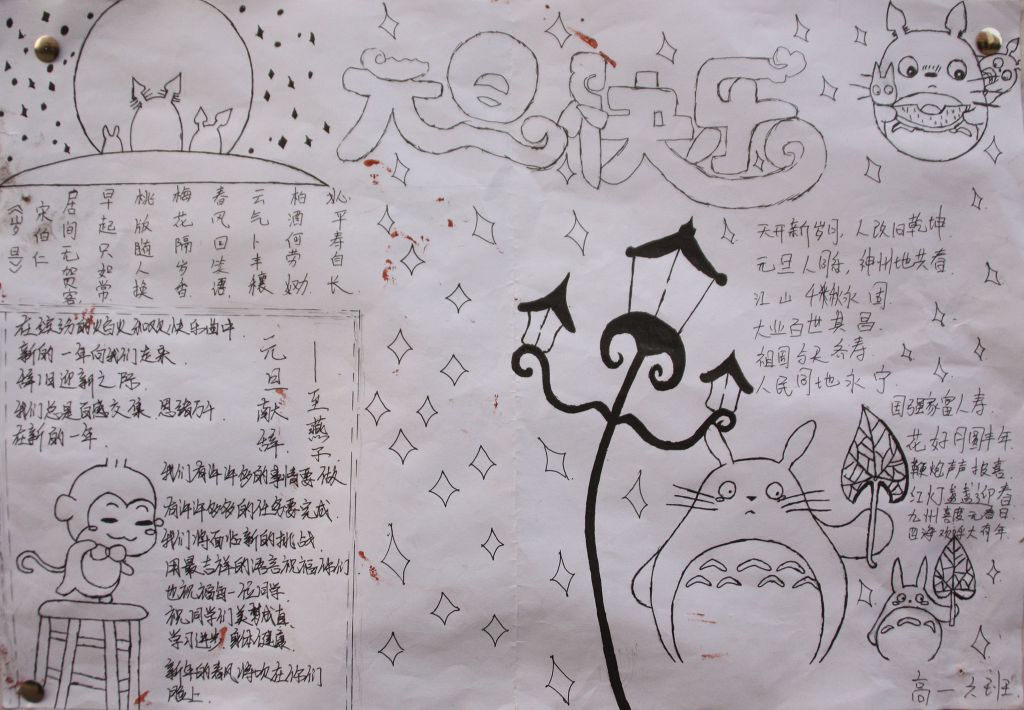 元旦快乐
《岁旦》
宋伯仁
居间无贺客
早起只如常
桃版随人换
梅花隔岁香
春风回笑语
云气卜丰穰
柏酒何劳劝
心平寿自长
元旦献辞
——王燕子
在缤纷的焰火和欢快乐曲中
新的一年向我们走来
辞旧迎新之际
我们总是百感交集、思绪万千
在新的一年
我们有许许多多的事情要做
有许许多多的任务要完成
我们将面临新的挑战
用最吉祥的语言祝福你们
也祝福每一位同学
祝同学们美梦成真
学习进步 身体健康
新年的春风将吹在你们
脸上
天开新岁月,人改旧乾坤
元旦人同好,神州地共春
江山千秋永固
大业百世其昌
祖国与天齐寿
人民同地永宁
国强家富人寿
花好月圆丰年
鞭炮声声报喜
红灯盏盏迎春
九州喜度元春日
四海欢呼大有年
高一六班